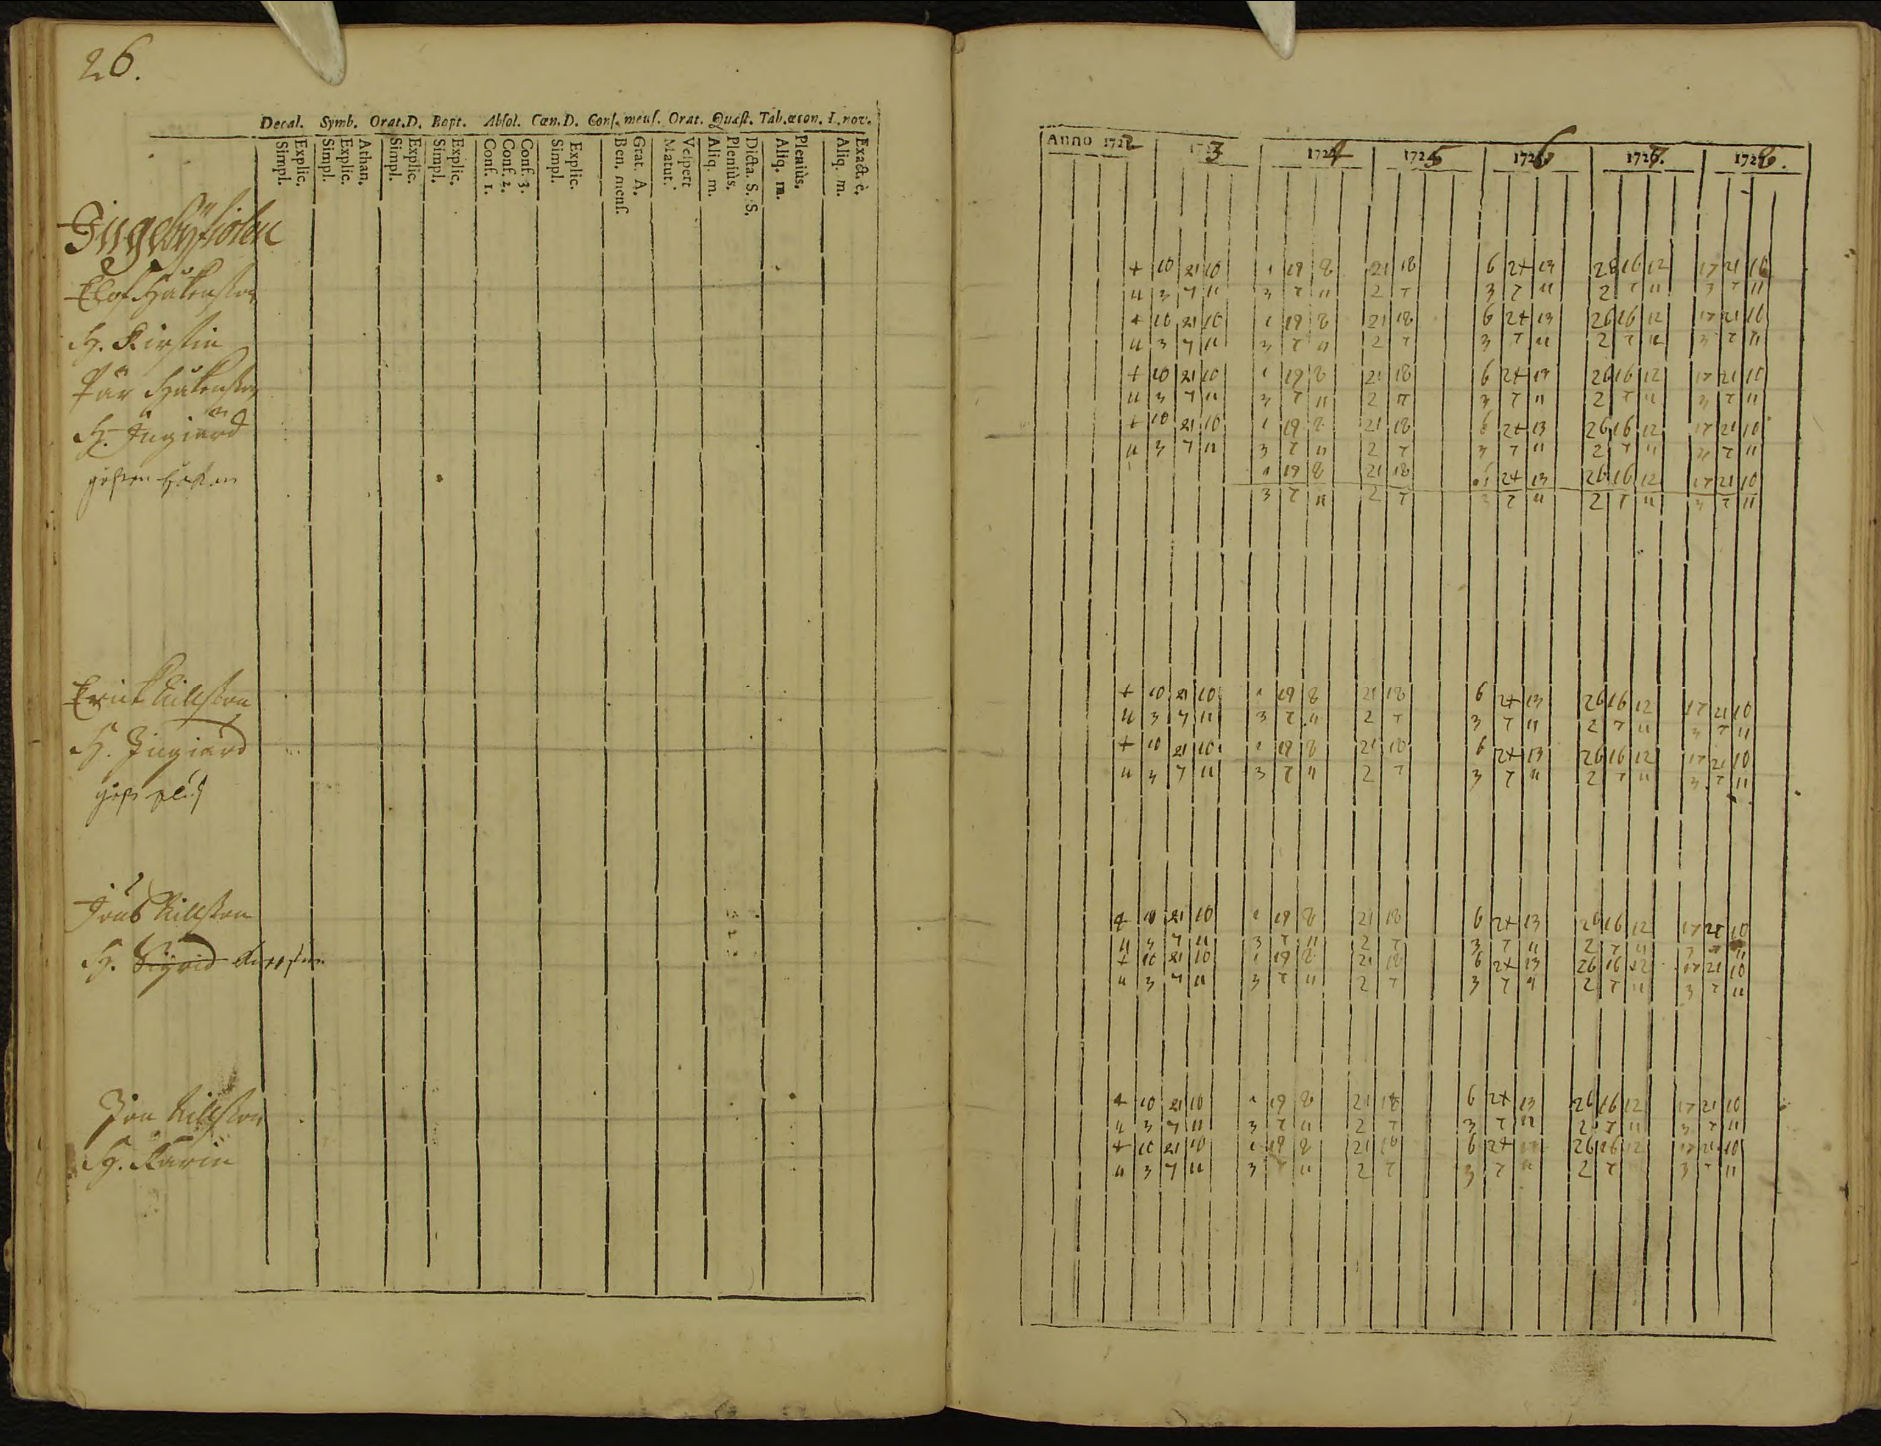 26.
Decal. Symb. Orat.D. Bapt. Absol. Cœn.D. Conf. mens. Orat. Quæst. Tab.œcon. I.nov.
Explic. Simpl. Athan. Explic. Simpl. Explic. Simpl. Explic. Simpl. Conf. 3. Conf. 2. Conf. 1. Explic. Simpl. Grat. A. Ben. mens. Vespert Matut. Dicta. S. S. Pleniùs. Aliq. m. Pleniùs. Aliq. m. Exactè. Aliq. m.
Elof Håkensson
H. Kirstin
Pär Håkensson
H. Ingiärd
Erick Nillsson
H. Ingiärd
Jöns Nillsson
H. Sigrid
Jon Nillsson
H. Karin
Anno 1722 1723 1724 1725 1726 1727. 1728.
4 10 21 10 1 19 8 21 18 6 24 13 26 16 12 17 21 10
11 3 7 11 3 7 11 2 7 3 7 11 2 7 11 3 7 11
4 10 21 10 1 19 8 21 18 6 24 13 26 16 12 17 21 10
11 3 7 11 3 7 11 2 7 3 7 11 2 7 11 3 7 11
4 10 21 10 1 19 8 21 18 6 24 13 26 16 12 17 21 10
11 3 7 11 3 7 11 2 7 3 7 11 2 7 11 3 7 11
4 10 21 10 1 19 8 21 18 6 24 13 26 16 12 17 21 10
11 3 7 11 3 7 11 2 7 3 7 11 2 7 11 3 7 11
1 19 8 21 18 6 24 13 26 16 12 17 21 10
3 7 11 2 7 3 7 11 2 7 11 3 7 11
4 10 21 10 1 19 8 21 18 6 24 13 26 16 12 17 21 10
11 3 7 11 3 7 11 2 7 3 7 11 2 7 11 3 7 11
4 10 21 10 1 19 8 21 18 6 24 13 26 16 12 17 21 10
11 3 7 11 3 7 11 2 7 3 7 11 2 7 11 3 7 11
4 10 21 10 1 19 8 21 18 6 24 13 26 16 12 17 21 10
11 3 7 11 3 7 11 2 7 3 7 11 2 7 11 3 7 11
4 10 21 10 1 19 8 21 18 6 24 13 26 16 12 17 21 10
11 3 7 11 3 7 11 2 7 3 7 11 2 7 11 3 7 11
4 10 21 10 1 19 8 21 18 6 24 13 26 16 12 17 21 10
11 3 7 11 3 7 11 2 7 3 7 11 2 7 11 3 7 11
4 10 21 10 1 19 8 21 18 6 24 13 26 16 12 17 21 10
11 3 7 11 3 7 11 2 7 3 7 11 2 7 3 7 11